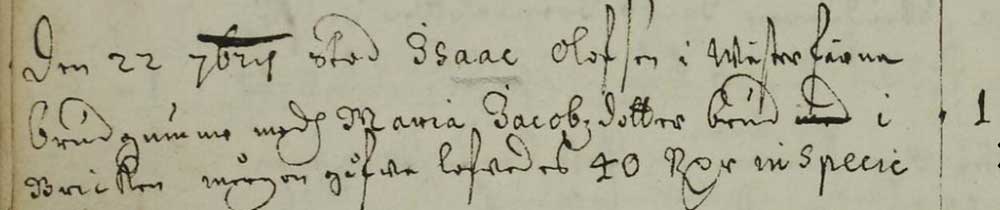 Den 22 7bris stod Isaac Olofsen i Wästerfärna
brudgumme medh Maria Jacobzdotter brud i 1
Bricken morgongåfva lofvedes 40 Rdr in Specie